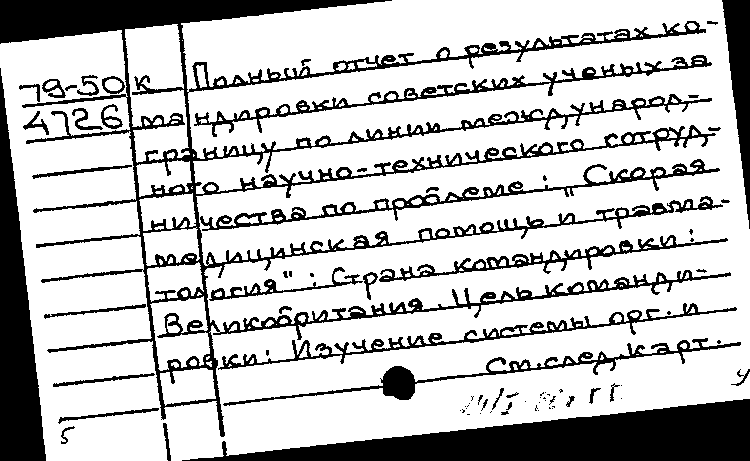 79-50 к Полный отчет о результатах ко-
4726 мандировки советских ученых за
границу по линии международ-
ного научно-технического сотруд-
ничества по проблеме: „Скорая
медицинская помощь и травма-
тология": Страна командировки:
Великобритания. Цель команди-
ровки: Изучение системы орг. и
См. след. карт.
5